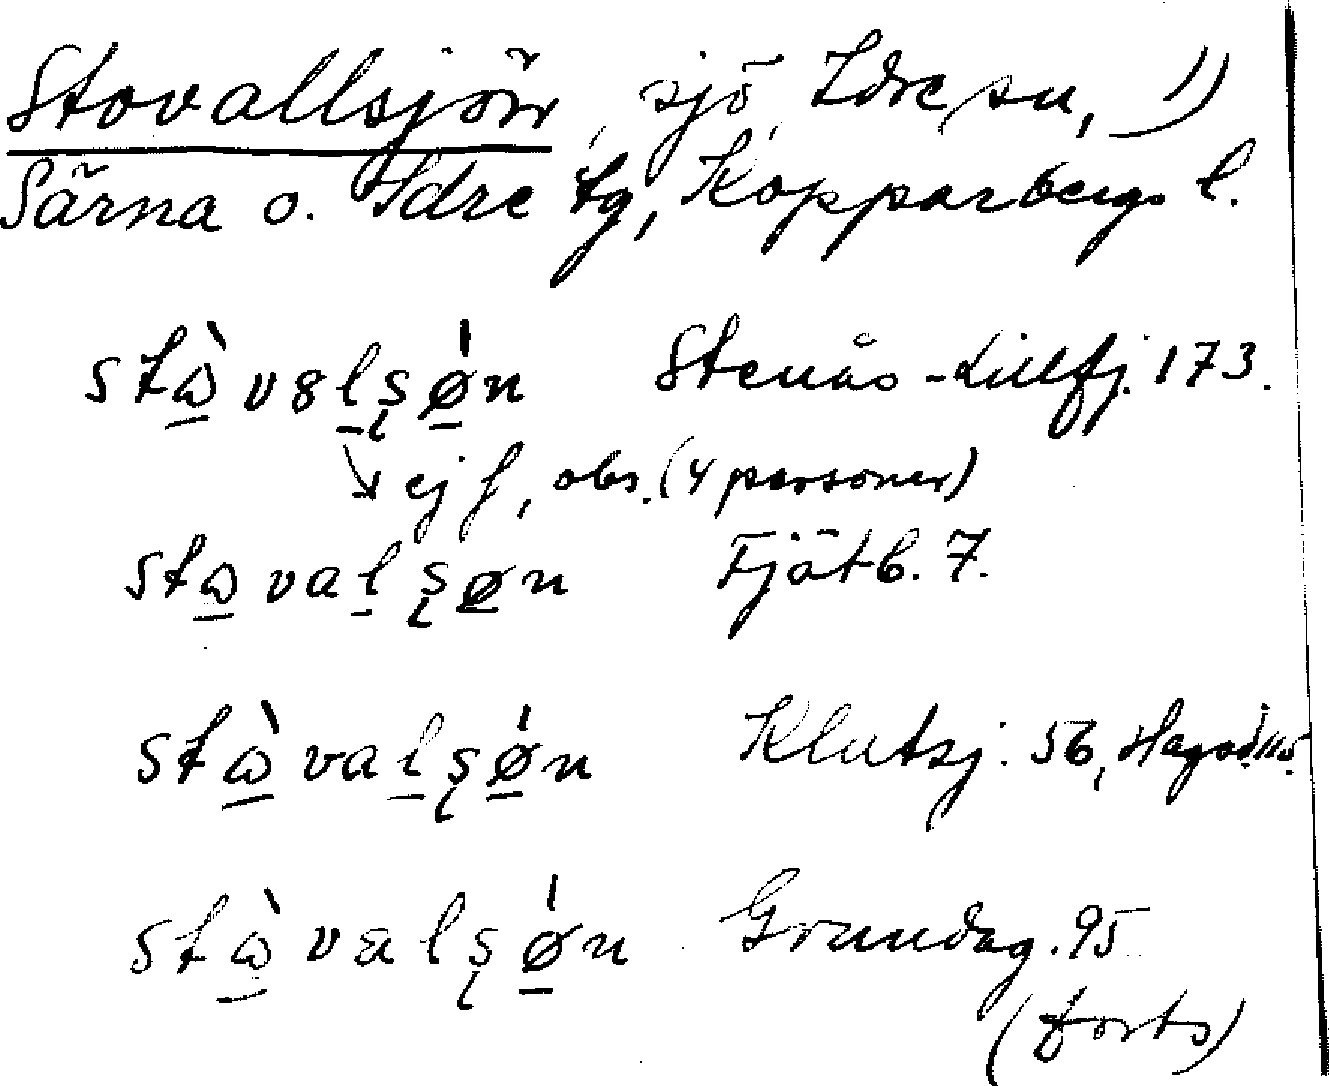 Stovallsjön, sjö, Idre sn, 1)
Särna o. Idre tg, Kopparbergs l.
stɷ̠̀vɞl̠ʂǿ̠n Stenås-Lillfj. 173.
↘ ej ʃ, obs. (4 personer)
stɷ̠val̠ʂø̠n Fjätb. 7.
stɷ̠̀val̠ʂǿ̠n Klutsj. 56,
stɷ̠̀valʂǿ̠n Grundag. 95
(forts)